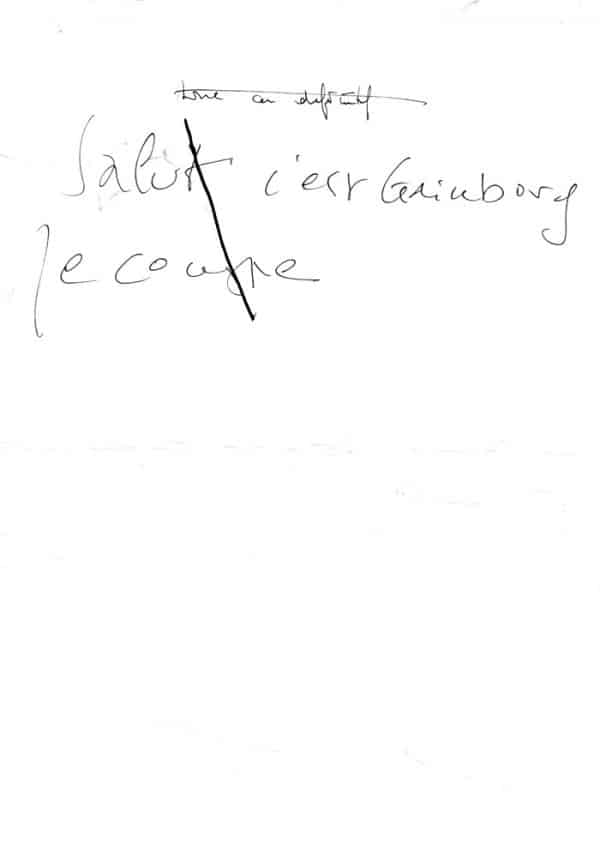 Salut c'est Gainborg
Je coupe